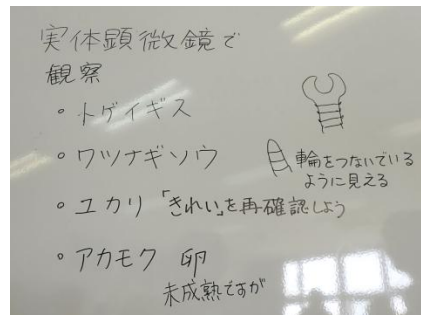 実体顕微鏡で
観察
・トゲイギス
・ワツナギソウ
輪をつないでいる
ように見える
・ユカリ「きれい」を再確認しよう
・アカモク 卵
未成熟ですが